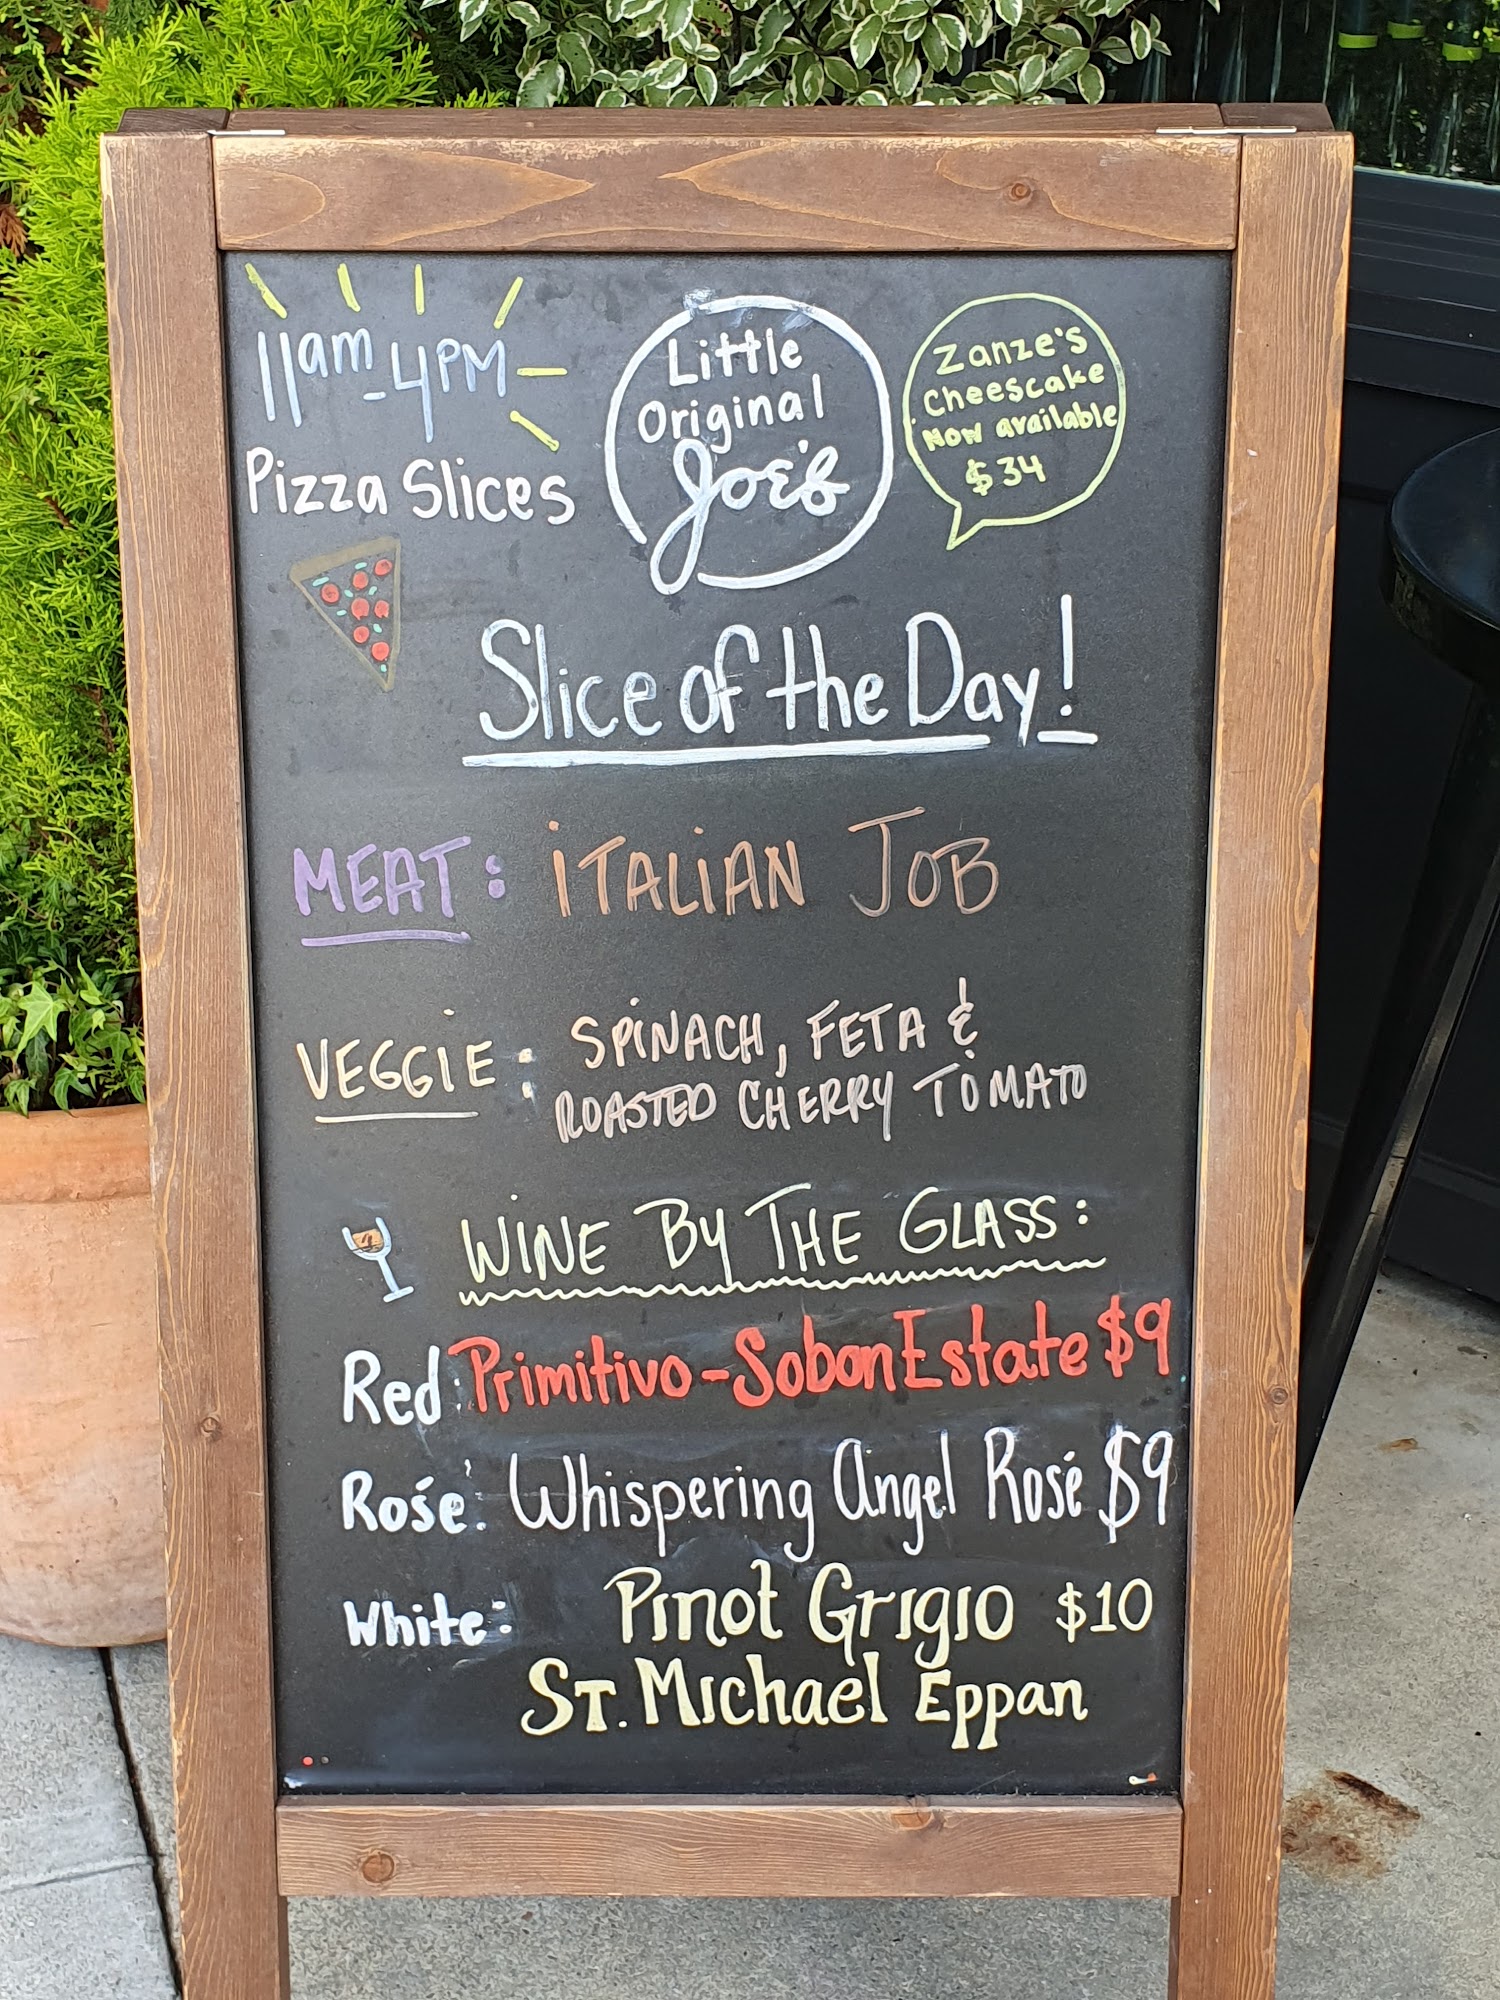 11am-4PM
Pizza Slices
Little
Original
Joe's
Zanze's
Cheesecake
Now available
$34
Slice of the Day!
MEAT: ITALIAN JOB
VEGGIE: SPINACH, FETA &
ROASTED CHERRY TOMATO
WINE BY THE GLASS:
Red: Primitivo-Sobon Estate $9
Rośe: Whispering Angel Rosé $9
White: Pinot Grigio $10
St. Michael Eppan